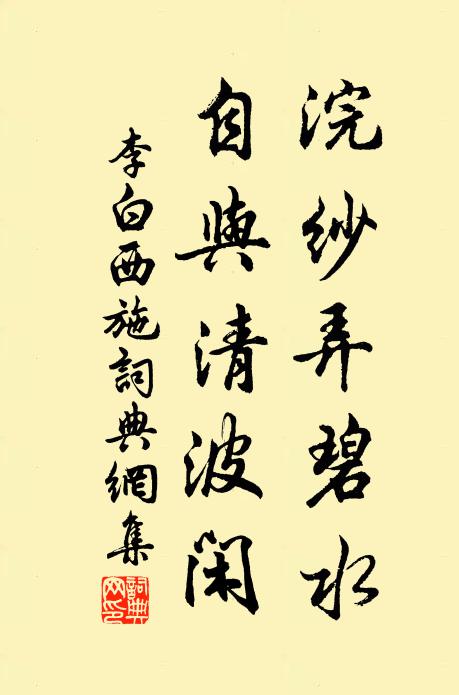 浣紗弄碧水
自與清波閑
李白西施詞典網集
詞典網印